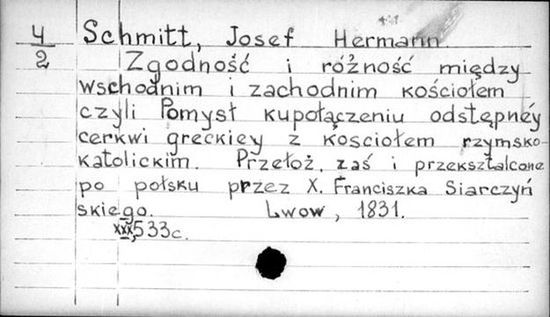 4/2
Schmitt, Josef Hermann.
Zgodność i różność między
wschodnim i zachodnim kościołem
czyli Pomysł kupołączeniu odstępnéy
cerkwi greckiey z kosciołem rzymsko-
katolickim. Przełoż. zaś i przekształcone
po polsku przez X. Franciszka Siarczyń
skiego. Lwow, 1831.
XXX,533c.